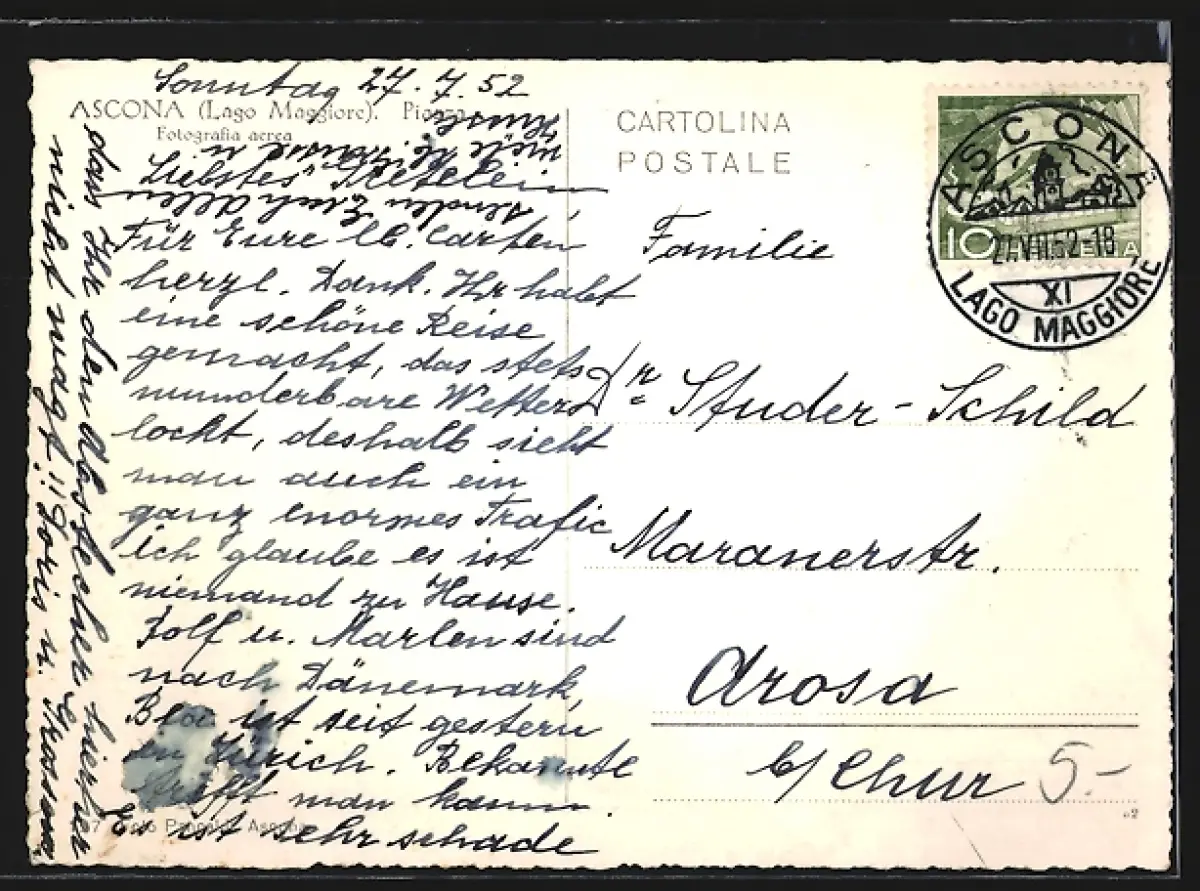 Sonntag 27.7.52
ASCONA (Lago Maggiore). Piazza
Fotografia aerea
Liebstes
Für Eure lb. Carten
herzl. Dank. Ihr habt
eine schöne Reise
gemacht, das stets
wunderbare Wetter
lockt, deshalb sieht
man auch ein
ganz enormes Trafic
ich glaube es ist
niemand zu Hause.
Rolf u. Marlen sind
nach Dänemark,
ist seit gestern
in Zürich. Bekannte
trifft man kaum.
Es ist sehr schade
dass Ihr den Abstecher hierher
nicht wagt!! Doris u.
senden Euch Allen
viele
Küssli
CARTOLINA
POSTALE
Familie
Dr. Studer-Schild
Maranerstr.
Arosa
b/ Chur
5.-
ASCONA
27.VII.52-18
XI
LAGO MAGGIORE
10 HELVETIA